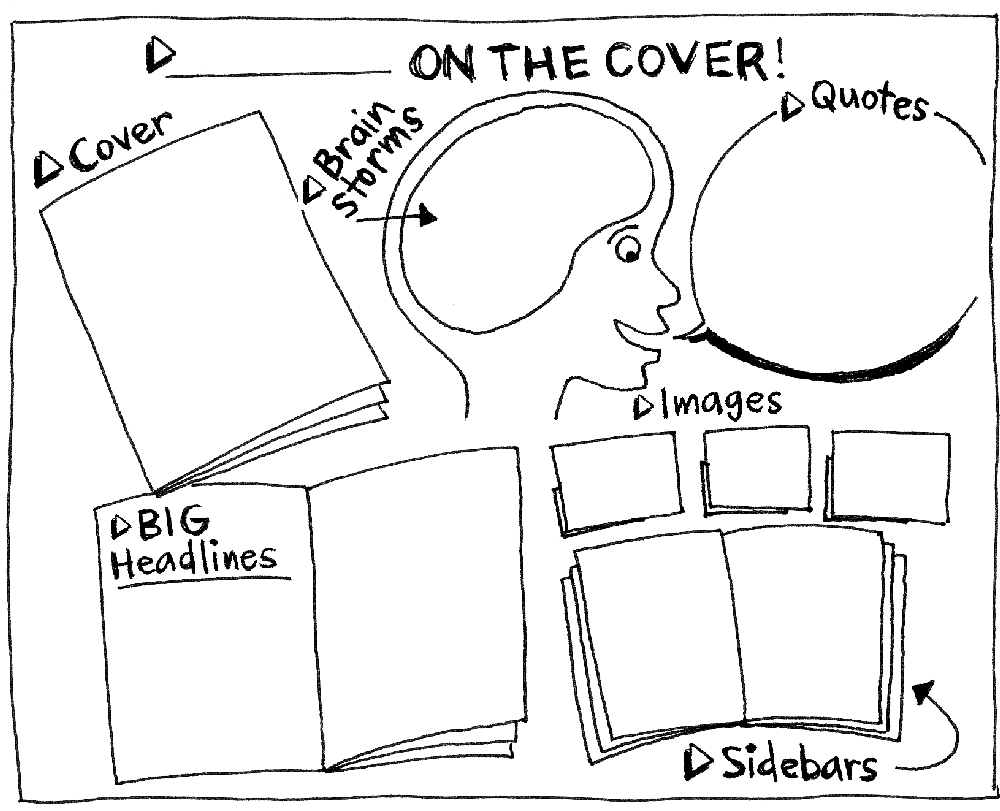 ON THE COVER!
Cover
Brain
storms
Quotes
Images
BIG
Headlines
Sidebars